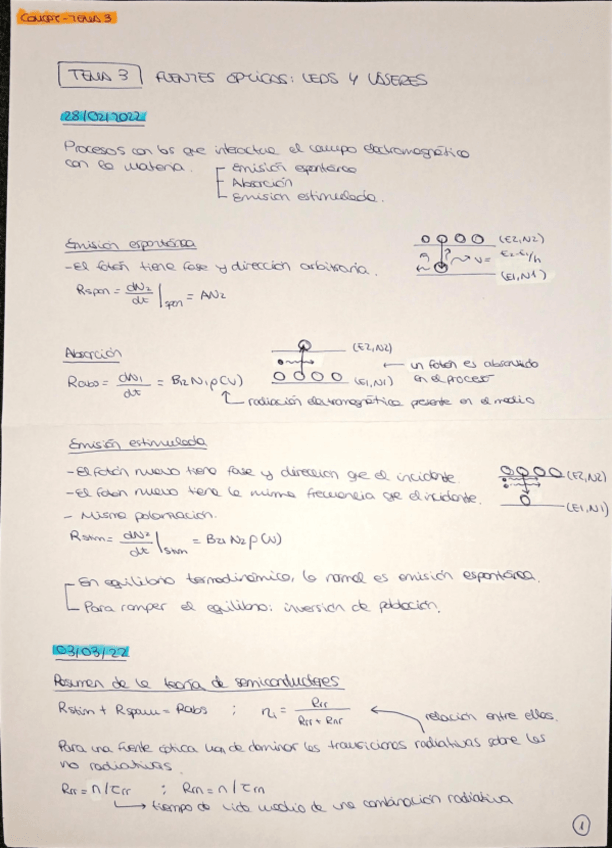 CONCEPT - TEMA 3
TEMA 3 FUENTES OPTICAS: LEDS Y LÁSERES
28/02/2022
Procesos con los que interactua el campo electromagnético
con la materia. Emisión espontánea
Absorción
Emision estimulada.
Emisión espontánea
- El fotón tiene fase y dirección arbitraria.
(E2,N2)
ν = E2-E1/h
(E1,N1)
Rspon = dN2/dt |spon = AN2
Absorción
(E2,N2)
← un fotón es absorbido
en el proceso
Rabs = dN1/dt = B12 N1 ρ(ν)
(E1,N1)
radiación electromagnética presente en el medio
Emisión estimulada
- El fotón nuevo tiene fase y direccion que el incidente.
- El foton nuevo tiene la misma frecuencia que el incidente.
- Misma polarización.
(E2,N2)
(E1,N1)
Rstim = dN2/dt |stim = B21 N2 ρ(ν)
En equilibrio termodinámico, lo normal es emisión espontánea.
Para romper el equilibrio: inversión de población.
03/03/22
Resumen de la teoría de semiconductores
Rstim + Rspon = Rabs ; ηi = Rrr / Rrr + Rnr ← relación entre ellos.
Para una fuente óptica han de dominar las transiciones radiativas sobre las
no radiativas.
Rrr = n/τrr ; Rrn = n/τrn
→ tiempo de vida medio de una combinación radiativa
1